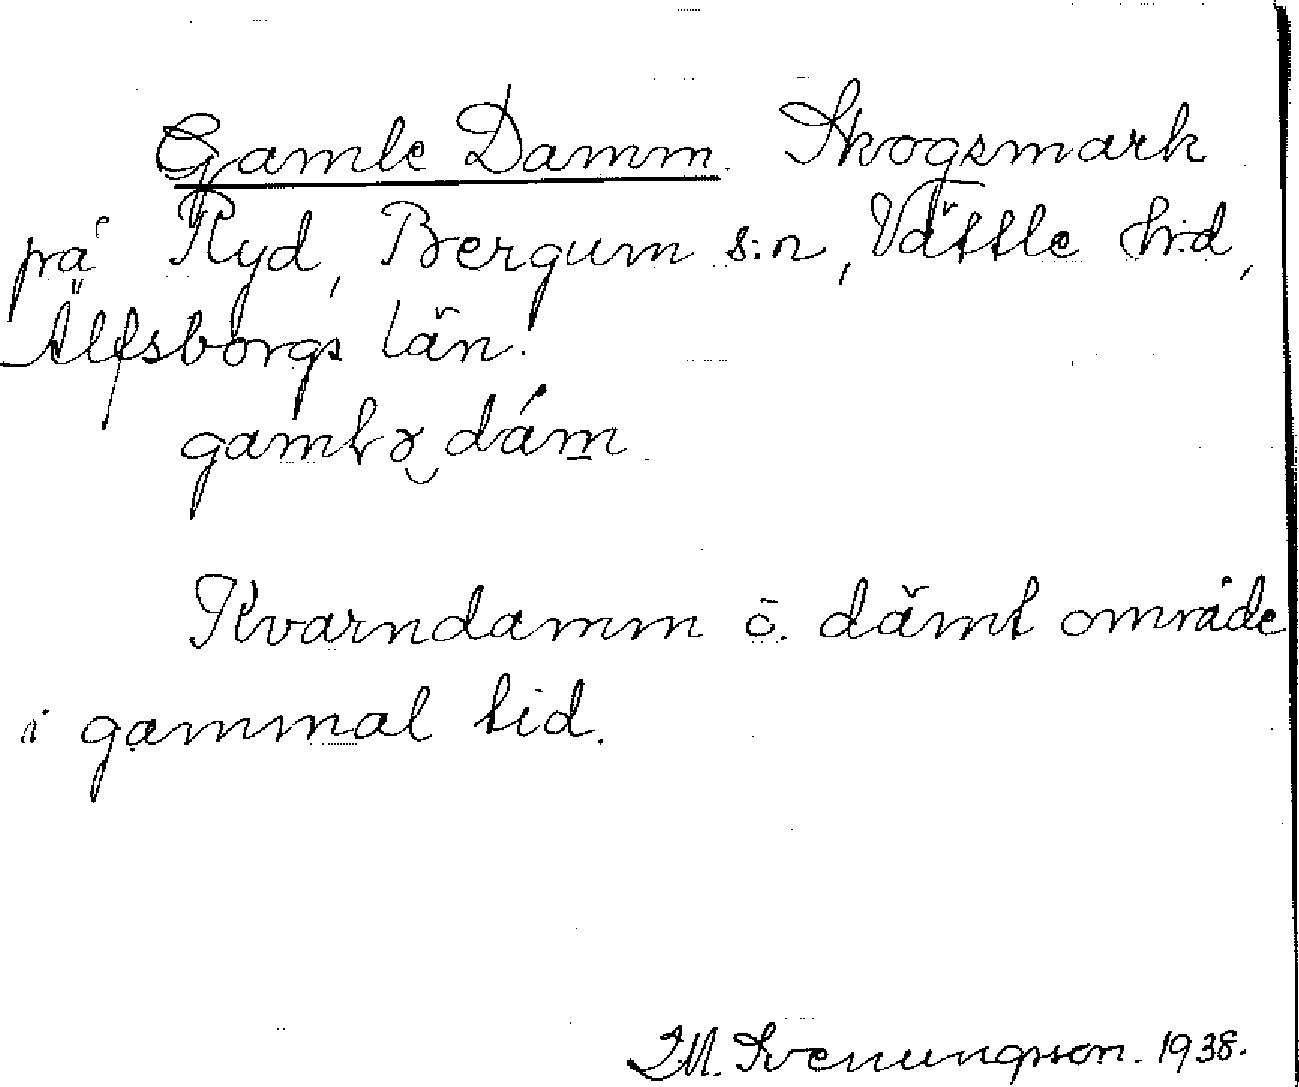 Gamle Damm. Skogsmark
på Ryd, Bergum s:n, Vättle h:d,
Älfsborgs län.
gamlə dám
Kvarndamm o. dämt område
i gammal tid.
I.M. Svenungsson. 1938.